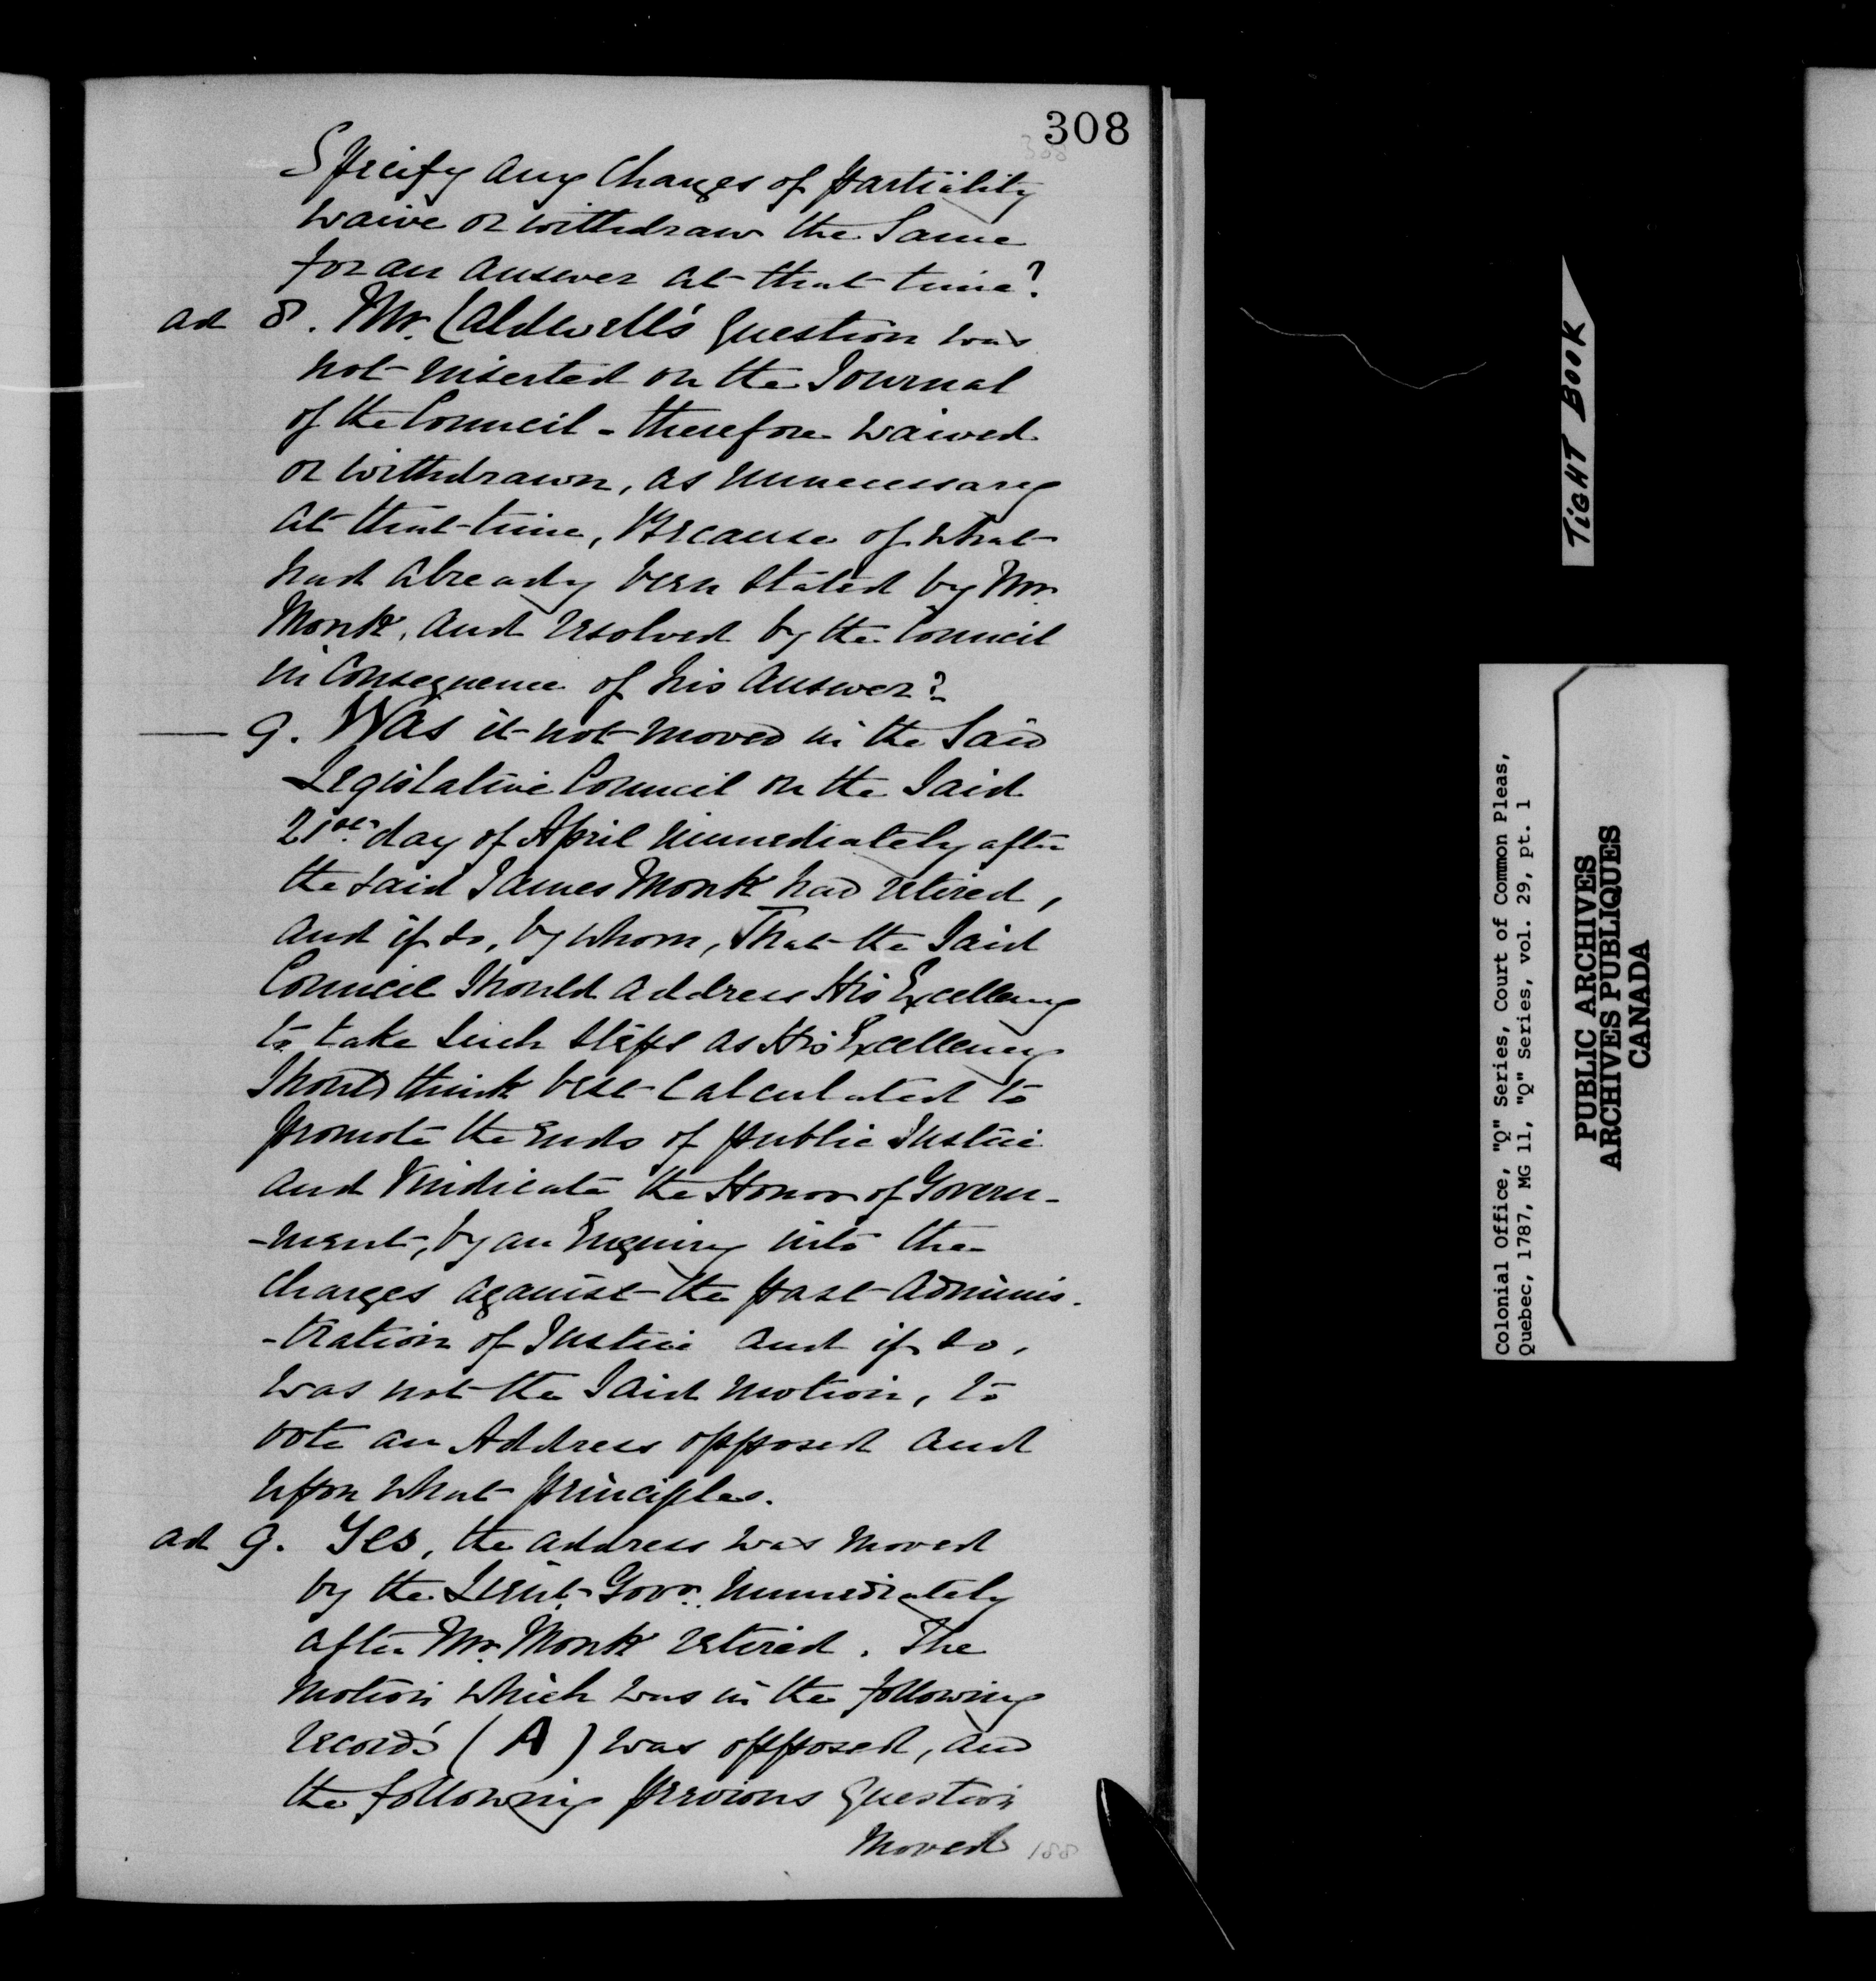 308
Specify any Charges of partiality
waive or withdraw the Same
for an answer at that time?
ad 8. Mr. Caldwell's Question was
not inserted on the Journal
of the Council - therefore waived
or withdrawn, as unnecessary
at that time, Because of what
had already been stated by Mr.
Monk, and resolved by the Council
in Consequence of his answer?
— 9. Was it not moved in the Said
Legislative Council on the Said
21st day of April immediately after
the said James Monk had retired,
and if so, by whom, That the Said
Council Should address His Excellency
to take Such steps as His Excellency
Should think best Calculated to
promote the Ends of public Justice
and Vindicate the Honor of Govern-
-ment, by an Enquiry into the
charges against the past Adminis-
-tration of Justice and if so,
was not the Said motion, to
vote an Address opposed and
upon what principles.
ad 9. Yes, the address was moved
by the Lieut. Govr. immediately
after Mr. Monk retired. The
motion which was in the following
records (A) was opposed, and
the following previous Question
Moved 188
TIGHT BOOK
Colonial Office, "Q" Series, Court of Common Pleas,
Quebec, 1787, MG 11, "Q" Series, vol. 29, pt. 1
PUBLIC ARCHIVES
ARCHIVES PUBLIQUES
CANADA